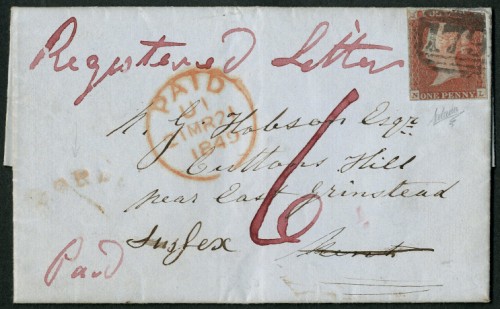 Registered Letter
PAID
21MR21
1849
ONE PENNY
W. G. Hobson Esqre
Cuttons Hill
near East Grinstead
Sussex Kent
6
Paid